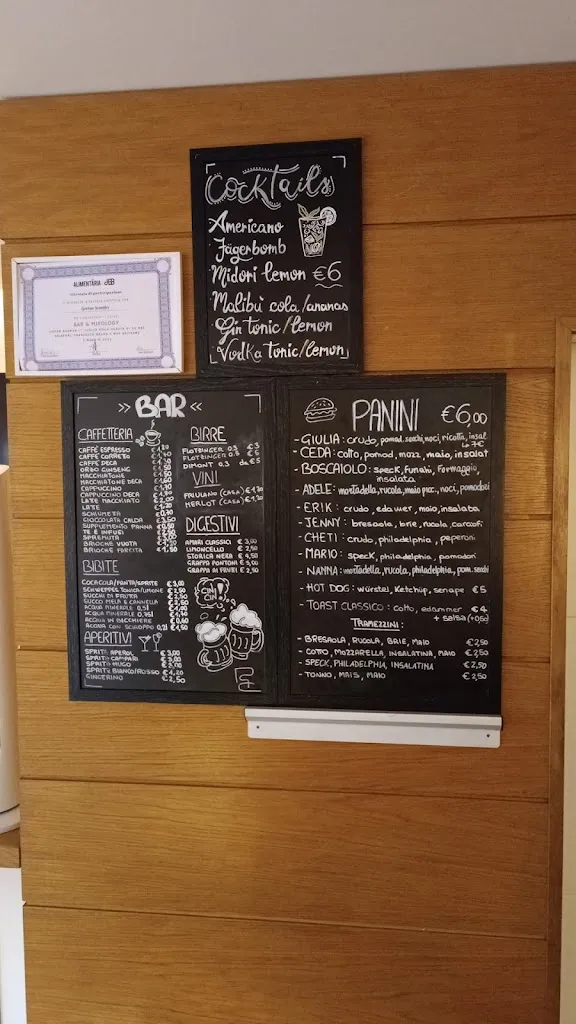 Cocktails
Americano
Jägerbomb
Midori lemon €6
Malibù cola/ananas
Gin tonic/lemon
Vodka Tonic/lemon
ALIMENTARIA
BAR & MIXOLOGY
>> BAR <<
CAFFETTERIA
CAFFÈ ESPRESSO
CAFFÈ CORRETTO
CAFFÈ DECA
ORZO GINSENG
MACCHIATONE
MACCHIATONE DECA
CAPPUCCINO
CAPPUCCINO DECA
LATE MACCHIATO
LATE
SCHIUMETA
CIOCCOLATA CALDA
SUPPLEMENTO PANNA
TE E INFUSI
SPREMUTA
BRIOCHE VUOTA
BRIOCHE FARCITA
BIBITE
COCACOLA/FANTA/SPRITE €3,00
SCHWEPPES TONICA/LIMONE
SUCCHI DI FRUTA
SUCCO MELA E CANNELLA
ACQUA MINERALE 0,5l
ACQUA MINERALE 0,75l
ACQUA IN BICCHIERE
ACQUA CON SCIROPPO 0,2l
APERITIVI
SPRITZ APEROL €3,00
SPRITZ CAMPARI €3,00
SPRITZ HUGO €3,00
SPRITZ BIANCO/ROSSO €1,20
GINGERINO €2,50
BIRRE
FLOTBINGER 0,3 €3
FLOTBINGER 0,5 €5
DIMONT 0,3 da €5
VINI
FRIULANO (CASA) €1,20
MERLOT (CASA) €1,20
DIGESTIVI
AMARI CLASSICI €3,00
LIMONCELLO €2,50
STORICA NERA €4,50
GRAPPA PONTONI €3,00
GRAPPA AI FRUTTI €2,50
CIN CIN!
PANINI €6,00
- GIULIA: crudo, pomod. secchi, noci, ricotta, insal.
↳ 7€
- CEDA: cotto, pomod, mozz, maio, insalat
- BOSCAIOLO: speck, funghi, formaggio,
insalata
- ADELE: mortadella, rucola, maio picc., noci, pomodori
- ERIK: crudo, edamer, maio, insalata
- JENNY: bresaola, brie, rucola, carciofi
- CHETI: crudo, philadelphia, peperoni
- MARIO: speck, philadelphia, pomodori
- NANNA: mortadella, rucola, philadelphia, pom. secchi
- HOT DOG: würstel, ketchup, senape €5
- TOAST CLASSICO: cotto, edammer €4
+ salsa (+0,50)
TRAMEZZINI:
- BRESAOLA, RUCOLA, BRIE, MAIO €2,50
- COTTO, MOZZARELLA, INSALATINA, MAIO €2,50
- SPECK, PHILADELPHIA, INSALATINA €2,50
- TONNO, MAIS, MAIO €2,50